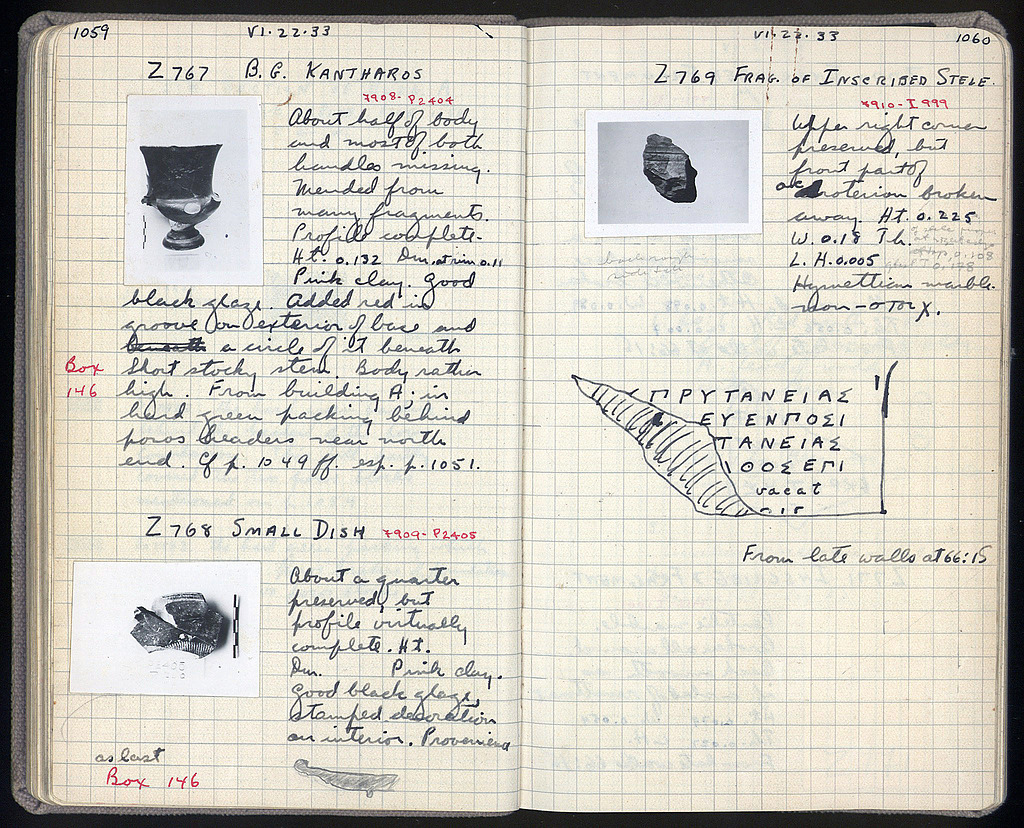 1059
VI.22.33
Z 767 B.G. KANTHAROS
7908-P2404
About half of body
and most of both
handles missing.
Mended from
many fragments.
Profile complete.
Ht. 0.132 Dm. at rim 0.11
Pink clay. Good
black glaze. Added red in
groove on exterior of base and
beneath a circle of it beneath
Short stocky stem. Body rather
high. From building A; in
hard green packing behind
poros headers near north
end. Cf p. 1049 ff. esp. p. 1051.
Box
146
Z 768 SMALL DISH 7909-P2405
About a quarter
preserved, but
profile virtually
complete. Ht.
Dm. Pink clay.
Good black glaze,
stamped decoration
on interior. Provenience
as last
Box 146
VI.22.33
1060
Z 769 FRAG. OF INSCRIBED STELE.
7910-I 999
Upper right corner
preserved, but
front part of
akroterion broken
away. Ht. 0.225
W. 0.18 Th.
L.H. 0.005
Hymettian marble.
non-στοιχ.
ΠΡΥΤΑΝΕΙΑΣ
ΕΥΕΝΠΟΣΙ
ΤΑΝΕΙΑΣ
ΙΘΟΣΕΠΙ
vacat
From late walls at 66:15